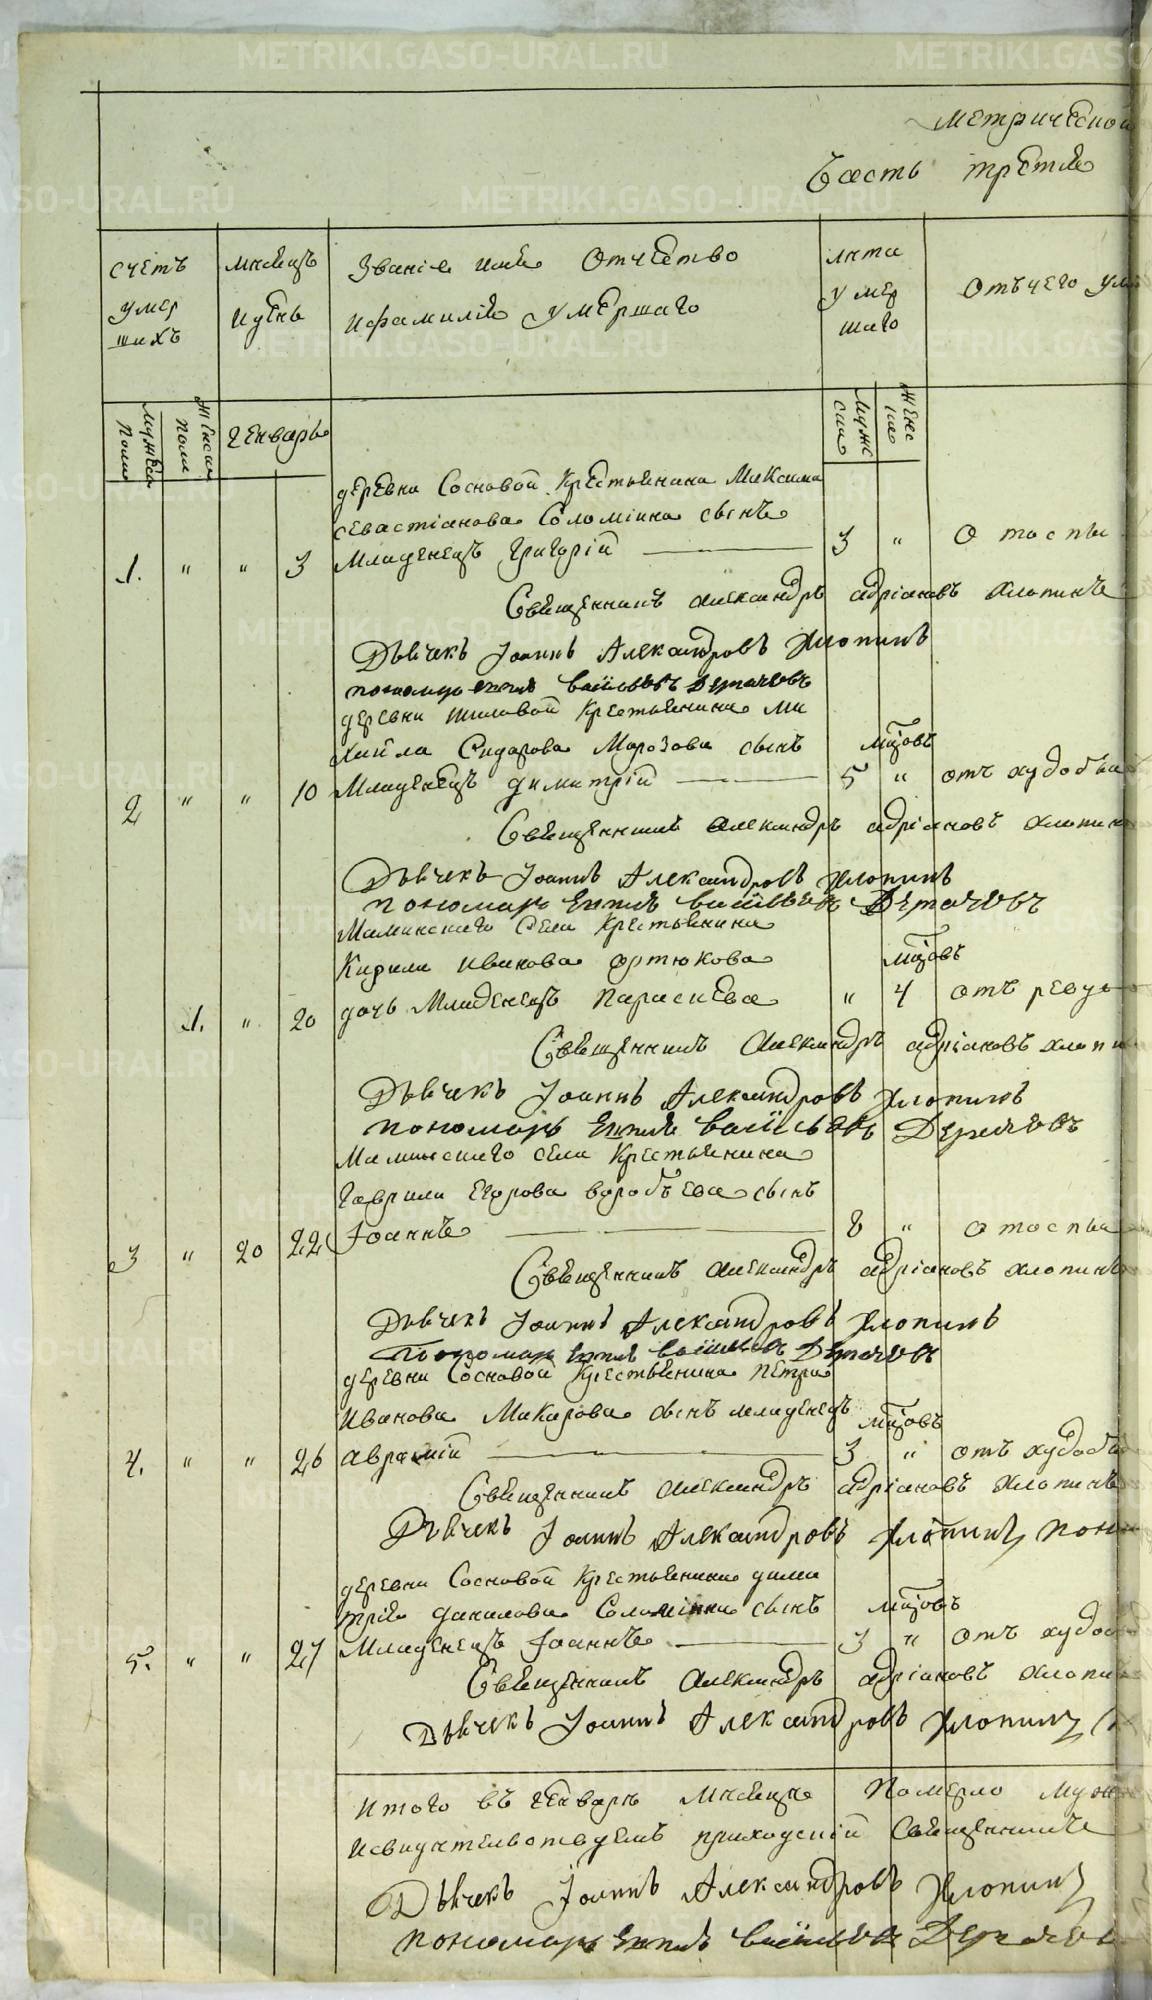 метрической
Часть третія
счетъ умер шихъ
мѣсяцъ идень
Званіе имя Отчество ифамилія умершаго
лѣта умер шаго
Отъчего
мужеска полу
женска полу
генварь
мужс
женс
деревни Сосновой Крестьянина Максима
севастіанова Соломіина сынъ
1. " " 3 Младенецъ Григорій 3 " отоспы
Священникъ Александръ адріановъ хлопинъ
Дьячекъ Іоаннъ Александровъ Хлопинъ
пономарь васильевъ Дергачевъ
деревни шиловой Крестьянина ми
хайла Сидарова Морозова сынъ мцовъ
2 " " 10 Младенецъ димитрій 5 " отъ худобы
Священникъ александръ адріановъ хлопин
Дьячекъ Іоаннъ Александровъ Хлопинъ
пономарь васильевъ Дергачевъ
Маминскаго Села Крестьянина
Кирила иванова ортюкова мцовъ
1. " 20 дочь Младенецъ Параскева " 4 отъ
Священникъ Александръ адріановъ хлопи
Дьячекъ Іоаннъ Александровъ Хлопинъ
пономарь васильевъ Дергачевъ
Маминскаго села Крестьянина
Гаврила Егорова воробъева сынъ
3 " 20 22 Іоаннъ 8 " отоспы
Священникъ Александръ адріановъ хлопинъ
Дьячекъ Іоаннъ Александровъ Хлопинъ
Пономарь васильевъ Дергачевъ
деревни Сосновой Крестьянина петра
Иванова Макарова сынъ младенецъ мцовъ
4. " " 26 аврамій 3 " отъ худобы
Священникъ Александръ адріановъ хлопинъ
Дьячекъ Іоаннъ Александровъ Хлопинъ
деревни Сосновой Крестьянина дими
трія данилова Соломіина сынъ мцовъ
5. " " 27 Младенецъ Іоаннъ 3 " отъ
Священникъ Александръ адріановъ хлопи
Дьячекъ Іоаннъ Александровъ Хлопинъ
Итого въ генварѣ мѣсяцѣ Померло
исвидѣтельствуемъ приходскій Священникъ
Дьячекъ Іоаннъ Александровъ Хлопинъ
пономарь васильевъ Дергачевъ
METRIKI.GASO-URAL.RU